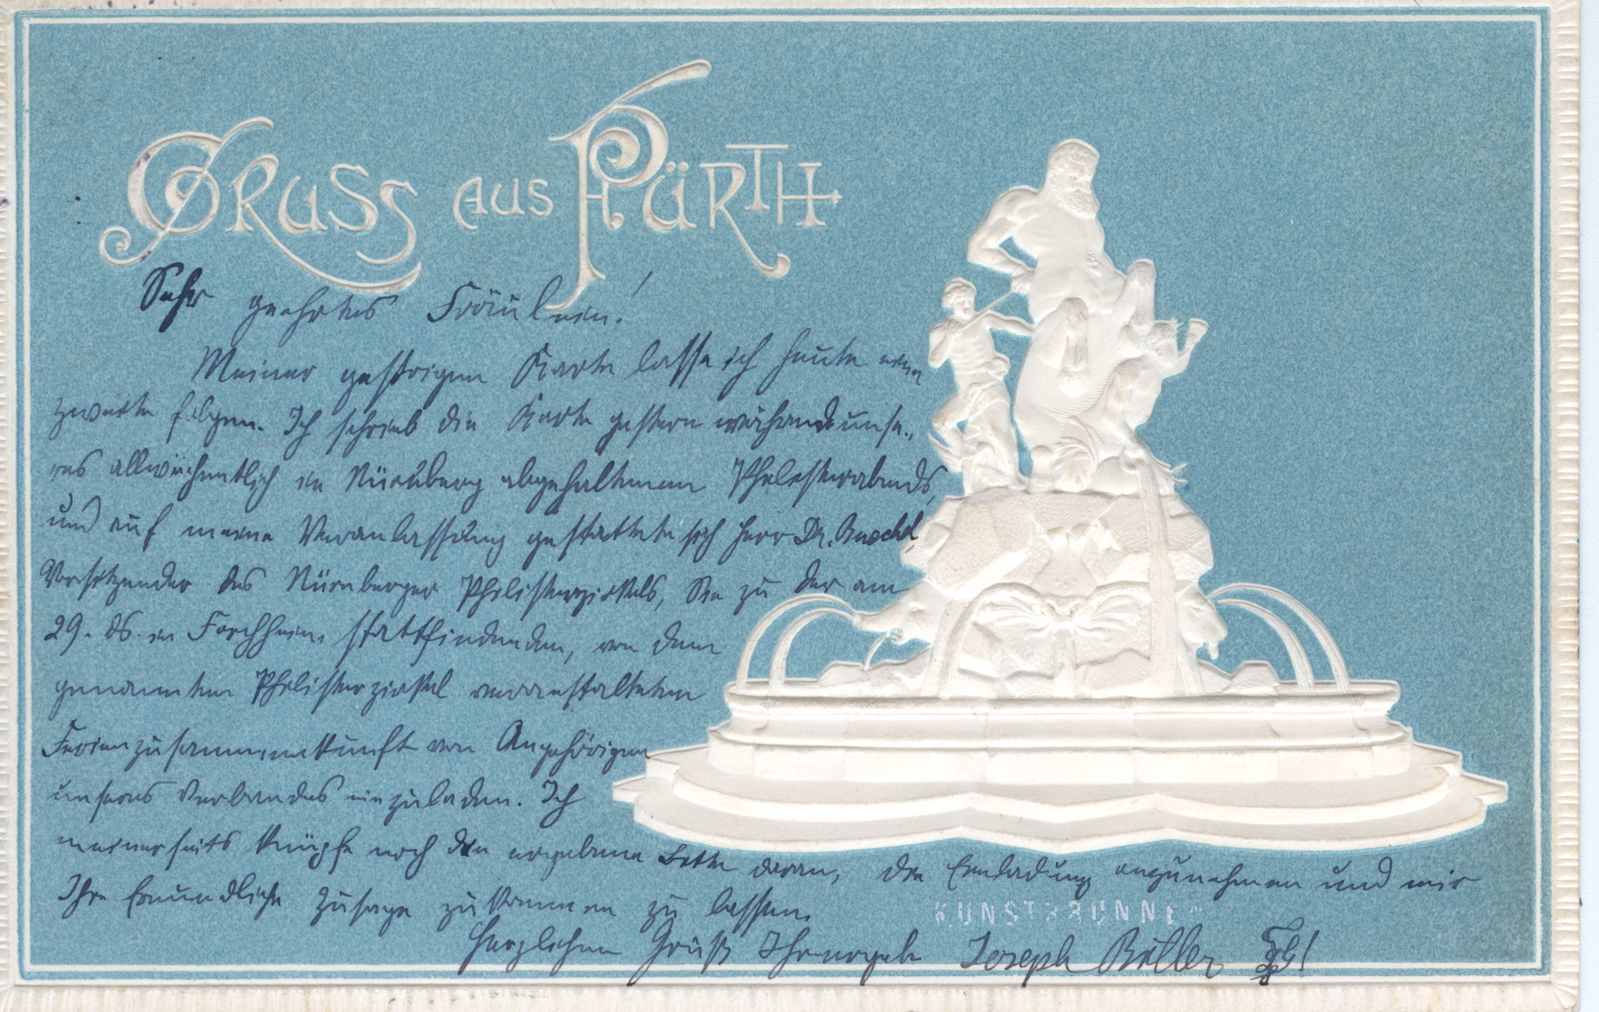 Gruss aus Fürth
Sehr geehrtes Fräulein!
Meiner gestrigen Karte lasse ich heute eine
zweite folgen. Ich schrieb die Karte gestern während unse-
res allwöchentlich in Nürnberg abgehaltenen Philisterabends
und auf meine Veranlassung gestattete sich Herr Dr.
Vorsitzender des Nürnberger Philisterzirkels, Sie zu der am
29. ds. in Forchheim stattfindenden, von dem
genannten Philisterzirkel veranstalteten
Ferienzusammenkunft von Angehörigen
unseres Verbandes einzuladen. Ich
meinerseits knüpfe noch die ergebene Bitte daran, die Einladung anzunehmen und mir
Ihre freundliche Zusage zukommen zu lassen.
KUNSTBRUNNEN
Herzlichen Gruß Ihr ergeb. Joseph